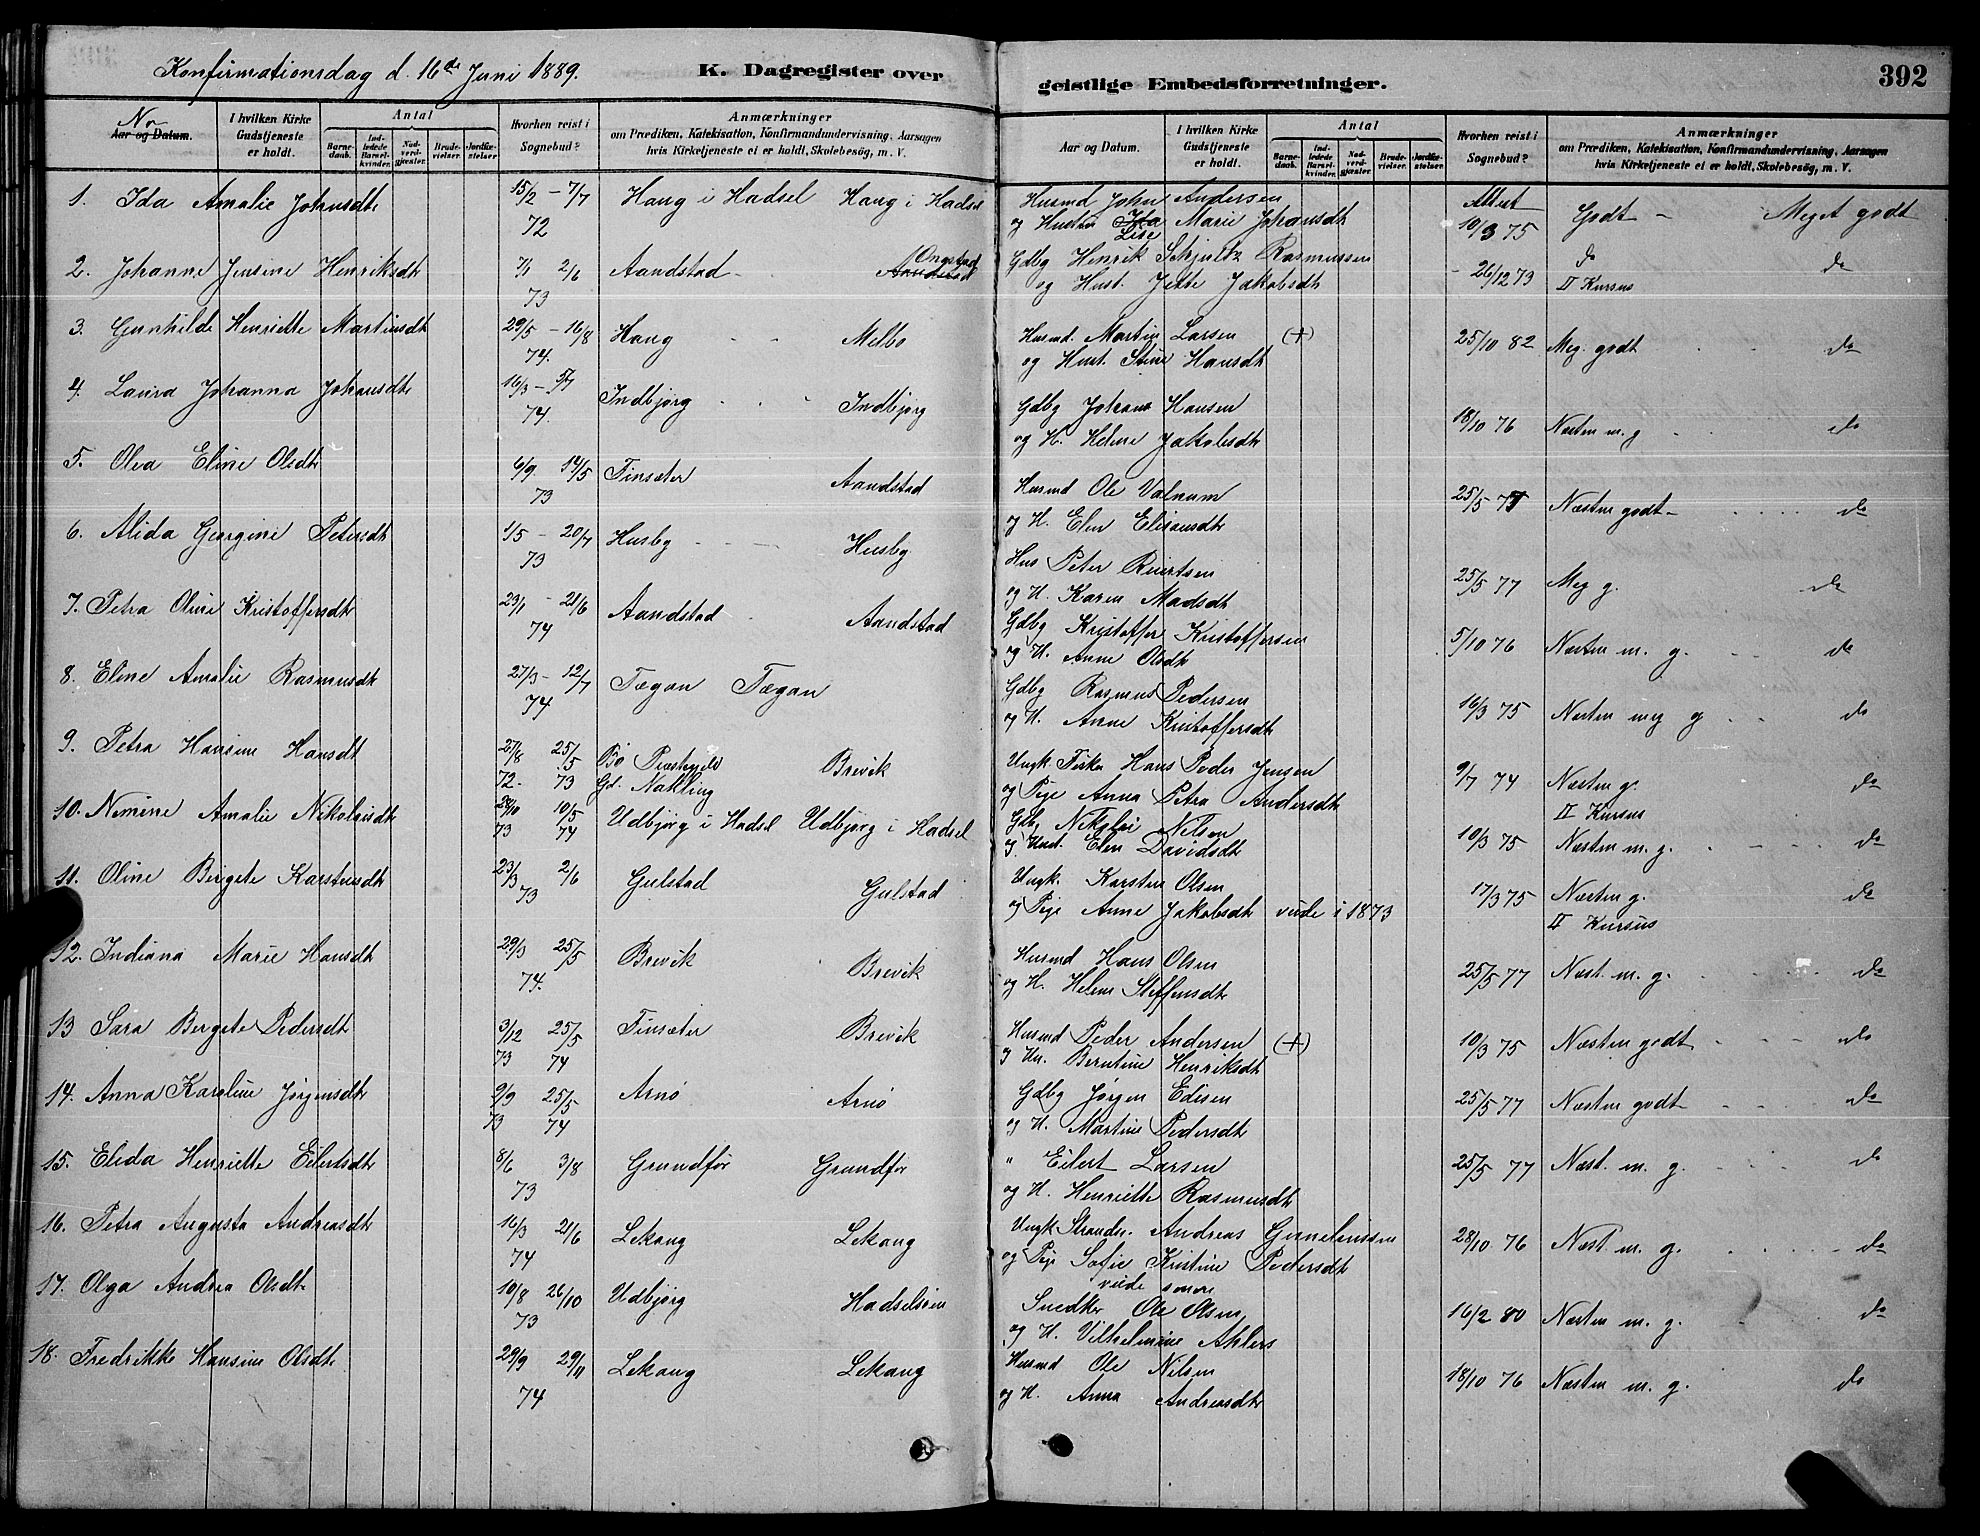 Konfirmationsdag d. 16de Juni 1889.
K. Dagregister over
geistlige Embedsforretninger.
392
No
Aar og Datum.
I hvilken Kirke Gudstjeneste er holdt.
Antal
Barnedaab.
Indledede Barselkvinder.
Nadverdgjester.
Brudevielser.
Jordfæstelser
Hvorhen reist i Sognebud?
Anmærkninger
om Prædiken, Katekisation, Konfirmandundervisning, Aarsagen
hvis Kirketjeneste ei er holdt, Skolebesøg, m. V.
Aar og Datum.
I hvilken Kirke Gudstjeneste er holdt.
Antal
Barnedaab.
Indledede Barselkvinder.
Nadverdgjester.
Brudevielser.
Jordfæstelser.
Hvorhen reist i Sognebud?
Anmærkninger
om Prædiken, Katekisation, Konfirmandundervisning, Aarsagen
hvis Kirketjeneste ei er holdt, Skolebesøg, m. V.
1. Ida Amalie Johnsdtr 15/2 – 7/7 72 Haug i Hadsel Haug i Hadsel
Husmd John Andersen Attest
og Hustru Ida Lise Marie Johansdtr 10/3 75 Godt – Meget godt
2. Johanne Jensine Henriksdtr 7/1 2/6 73 Aandstad Aandstad Ongstad
Gdbg Henrik Schjultz Rasmussen
og Hust. Jette Jakobsdtr 26/12 73 do II Kursus do
3. Gunhilde Henriette Martinsdtr 29/5 – 16/8 74. Haug Melbo
Husmd. Martin Larsen (+)
og Hust. Stine Hansdtr 25/10 82 Meg. godt do
4. Laura Johanna Johansdtr 16/3 – 5/7 74. Indbjørg Indbjørg
Gdbg Johan Hansen
og H. Helene Jakobsdtr 18/10 76 Næsten m. g do
5. Olea Eline Olsdtr 6/9 14/5 73 Finsæter Aandstad
Husmd Ole Valnum
og H. Elen Eliasdtr 25/5 77 Næsten godt – do
6. Alida Georgine Petersdtr 1/5 – 20/7 73 Husby Husby
Hus Peter Reiertsen
og H. Karen Madsdtr 25/5 77 Meg g. do
7. Petra Oline Kristoffersdtr 23/1 – 21/6 74 Aandstad Aandstad
Gdbg Kristoffer Kristoffersen
og H. Anne Olsdtr 5/10 76 Næsten m. g. do
8. Eline Amalie Rasmusdtr 27/3 – 12/7 74 Tægan Tægan
Gdbg Rasmus Pedersen
og H. Anne Kristoffersdtr 16/3 75 Næsten meg g do
9. Petra Hansine Hansdtr 27/8 72 – 25/5 73 Bø Præstegjeld Gd. Nakling Brevik
Ungk Fisker Hans Peder Jensen
og Pige Anna Petra Andersdtr 9/7 74 Næsten g. II Kursus do
10. Nimine Amalie Nikolaisdtr 28/10 73 10/5 74 Udbjørg i Hadsel Udbjørg i Hadsel
Gdbg Nikolai Nilsen
og Hust. Elen Davidsdtr 10/3 75 Næsten m. g. do
11. Oline Bergete Karstensdtr 23/3 2/6 73 Gulstad Gulstad
Ungk. Karsten Olsen
og Pige Anne Jakobsdtr viede i 1873 17/3 75 Næsten g. II Kursus do
12. Indiana Marie Hansdtr 29/3 25/5 74. Brevik Brevik
Husmd Hans Olsen
og H. Helene Steffensdtr 25/5 77 Næst. m. g. do
13 Sara Bergete Pedersdtr 3/12 73 25/5 74 Finsæter Brevik
Husmd Peder Andersen (+)
og Hu. Berntine Henriksdtr 10/3 75 Næsten godt do
14. Anna Karoline Jørgensdtr 9/9 73 25/5 74 Arnø Arnø
Gdbg Jørgen Edisen
og H. Martine Pedersdtr 25/5 77 Næsten godt do
15. Elida Henriette Eilertsdtr 8/6 3/8 73 Grundfør Grundfør
" Eilert Larsen
og H. Henriette Rasmusdtr 25/5 77 Næst. m. g. do
16. Petra Augusta Andreasdtr 16/3 21/6 74 Lekang Lekang
Ungk Strands. Andreas
og Pige Sofie Kristine Pedersdtr 28/10 76 Næst. m. g. do
viede senere
17. Olga Andrea Olsdtr 10/8 26/10 73 Udbjørg Hadselsøen
Snedker Ole Olsen
og H. Vilhelmine Ahlers 16/2 80 Næsten m. g. do
18. Fredrikke Hansine Olsdtr 29/9 29/11 74 Lekang Lekang
Husmd Ole Nilsen
og H. Anna Andreasdtr 18/10 76 Næsten m. g. do